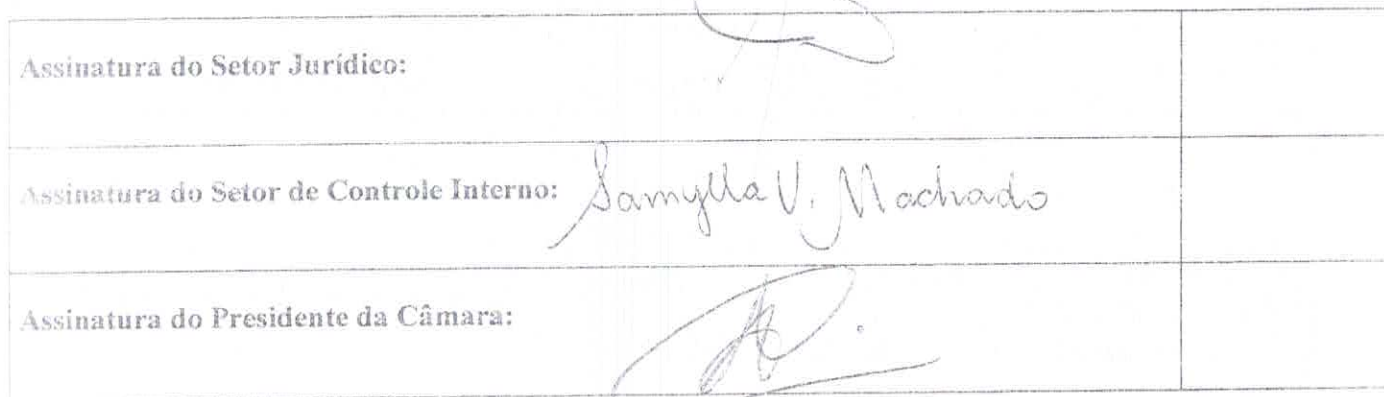 Assinatura do Setor Jurídico:
Assinatura do Setor de Controle Interno: Samylla V. Machado
Assinatura do Presidente da Câmara: